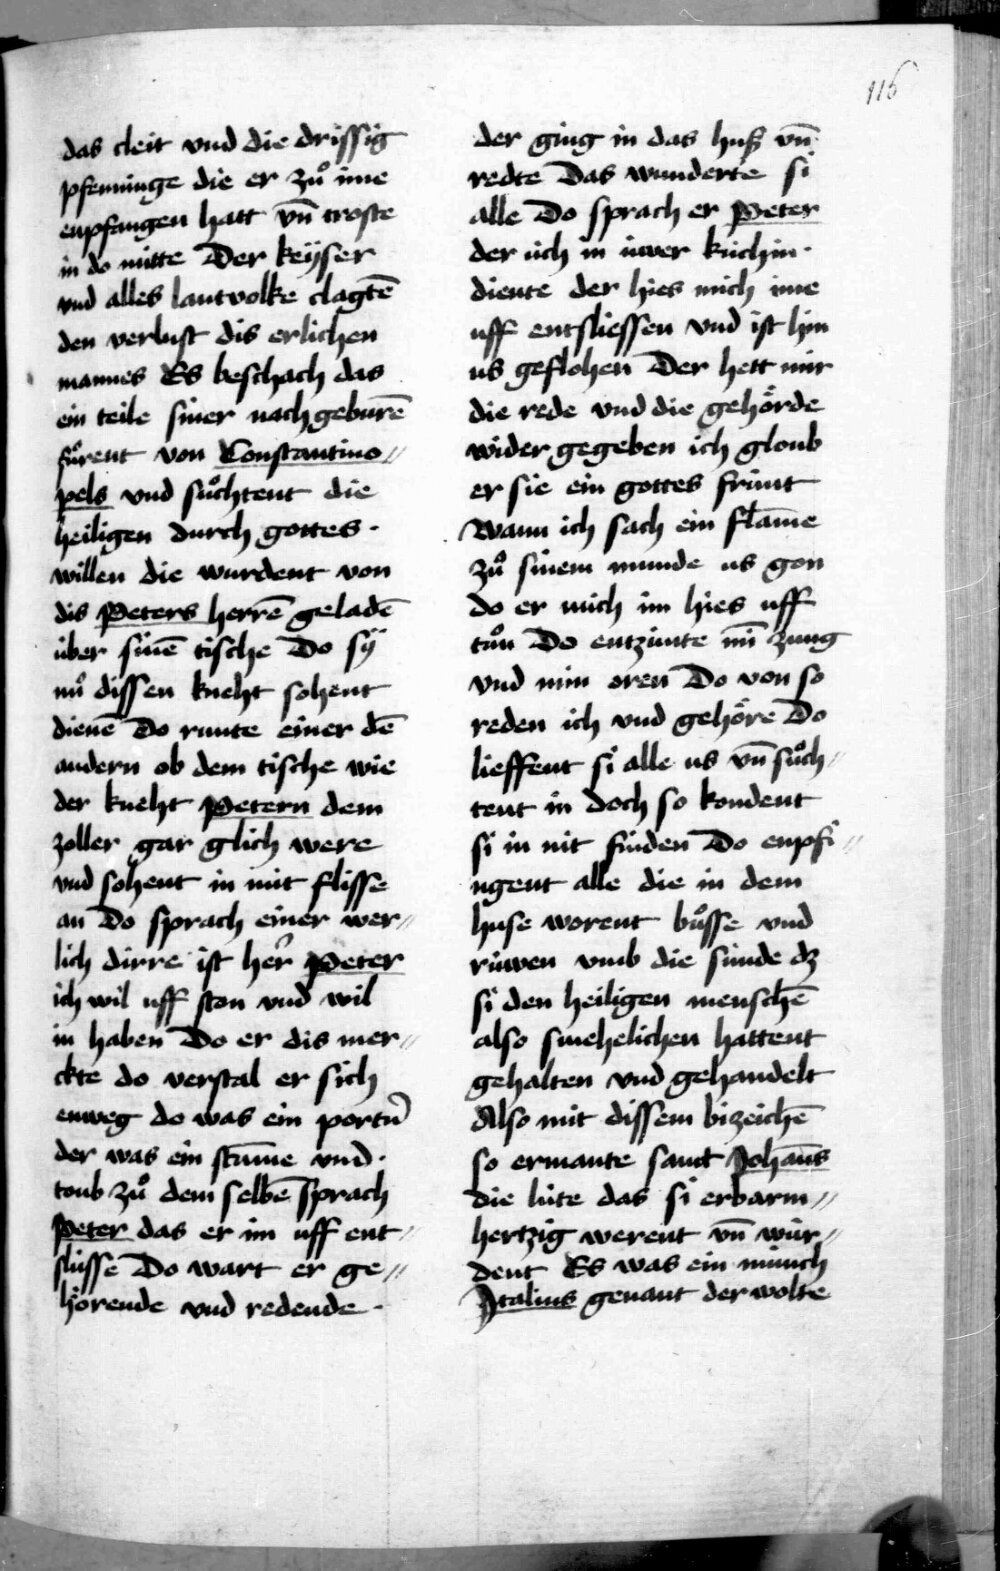 116
das cleit vnd die drissig
pfenninge die er zuͦ ime
enpfangen hatt vn̄ troste
in do mitte Der keyser
vnd alles lantvolke clagtē
den verlust dis erlichen
mannes Es beschach das
ein teile siner nachgeburē
fuͦrent von Constantino〃
pels vnd suͦchtent die
heiligen durch gottes ·
willen die wurdent von
dis Peters herrē geladē
über sinē tische Do sÿ
nuͦ dissen kneht sohent
dienē Do runte einer dē
andern ob dem tische wie
der kneht Petern dem
zoller gar glich were
vnd sohent in mit flisse
an Do sprach einer wer〃
lich dirre ist her̄ Peter
ich wil uff ston vnd wil
in haben Do er dis mer〃
ckte do verstal er sich
enweg do was ein portn̄
der was ein stūme vnd ·
toub zuͦ dem selbē sprach
Peter das er im uff ent〃
slüsse Do wart er ge〃
hörende vnd redende ·
der ging in das huß vn̄
redte Das wunderte si
alle Do sprach er Peter
der üch in üwer küchin ·
diente der hies mich ime
uff entsliessen vnd ist hin
us geflohen Der hett mir
die rede vnd die gehörde
wider gegeben ich gloub
er sie ein gottes frünt
Wann ich sach ein flāme
zuͦ sinem munde us gon
do er mich im hies uff
tuͦn Do entzünte mī zung
vnd min oren Do von so
reden ich vnd gehöre Do
lieffent si alle us vn̄ suͦch〃
tent in doch so kondent
si in nit finden Do enpfi〃
ngent alle die in dem
huse worent buͦsse vnd
rüwen vmb die sünde dz
si den heiligen menschē
also smehelichen hattent
gehalten vnd gehandelt
Also mit dissem bizeichē
so ermante sanct Johāns
die lüte das si erbarm〃
hertzig werent vn̄ wür〃
dent Es was ein münch
Italius genant der wolte